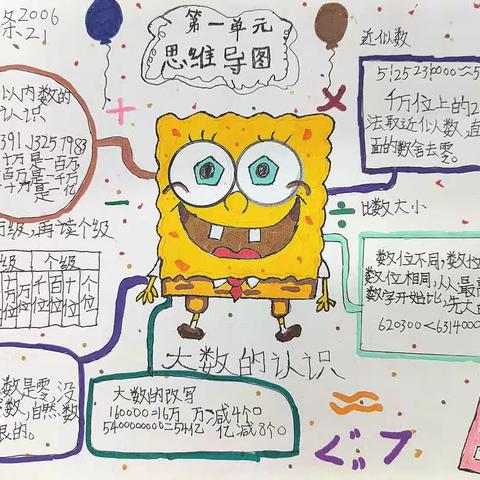 条2006
21
第一单元
思维导图
近似数
以内数的
认识
391 1325 7983
十万是一百万
百万是一千万
十万是一亿
5125230000≈5
千万位上的2
法取近似数,直
面的数舍去零。
级,再读个级
级 个级
万位 千位 百位 十位 个位
比数大小
数位不同,数位
数位相同,从最高
数字开始比,先大
620300<6314000
大数的认识
数是零,没
数,自然数
限的。
大数的改写
160000=16万 万→减4个0
5400000000=54亿 亿减8个0